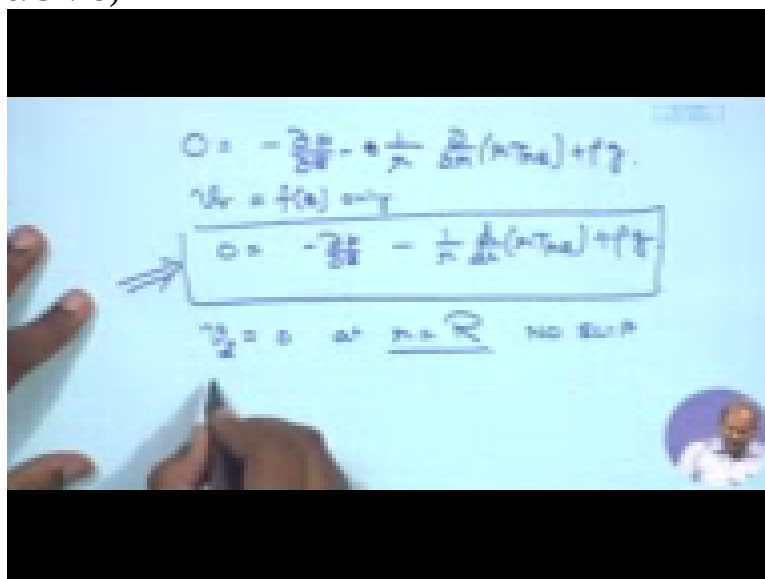 0 = - ∂p/∂z - 1/r ∂/∂r (r τrz) + ρg.
= f(r) only
0 = - ∂p/∂z - 1/r d/dr (r τrz) + ρg
vz = 0 at r = R NO SLIP